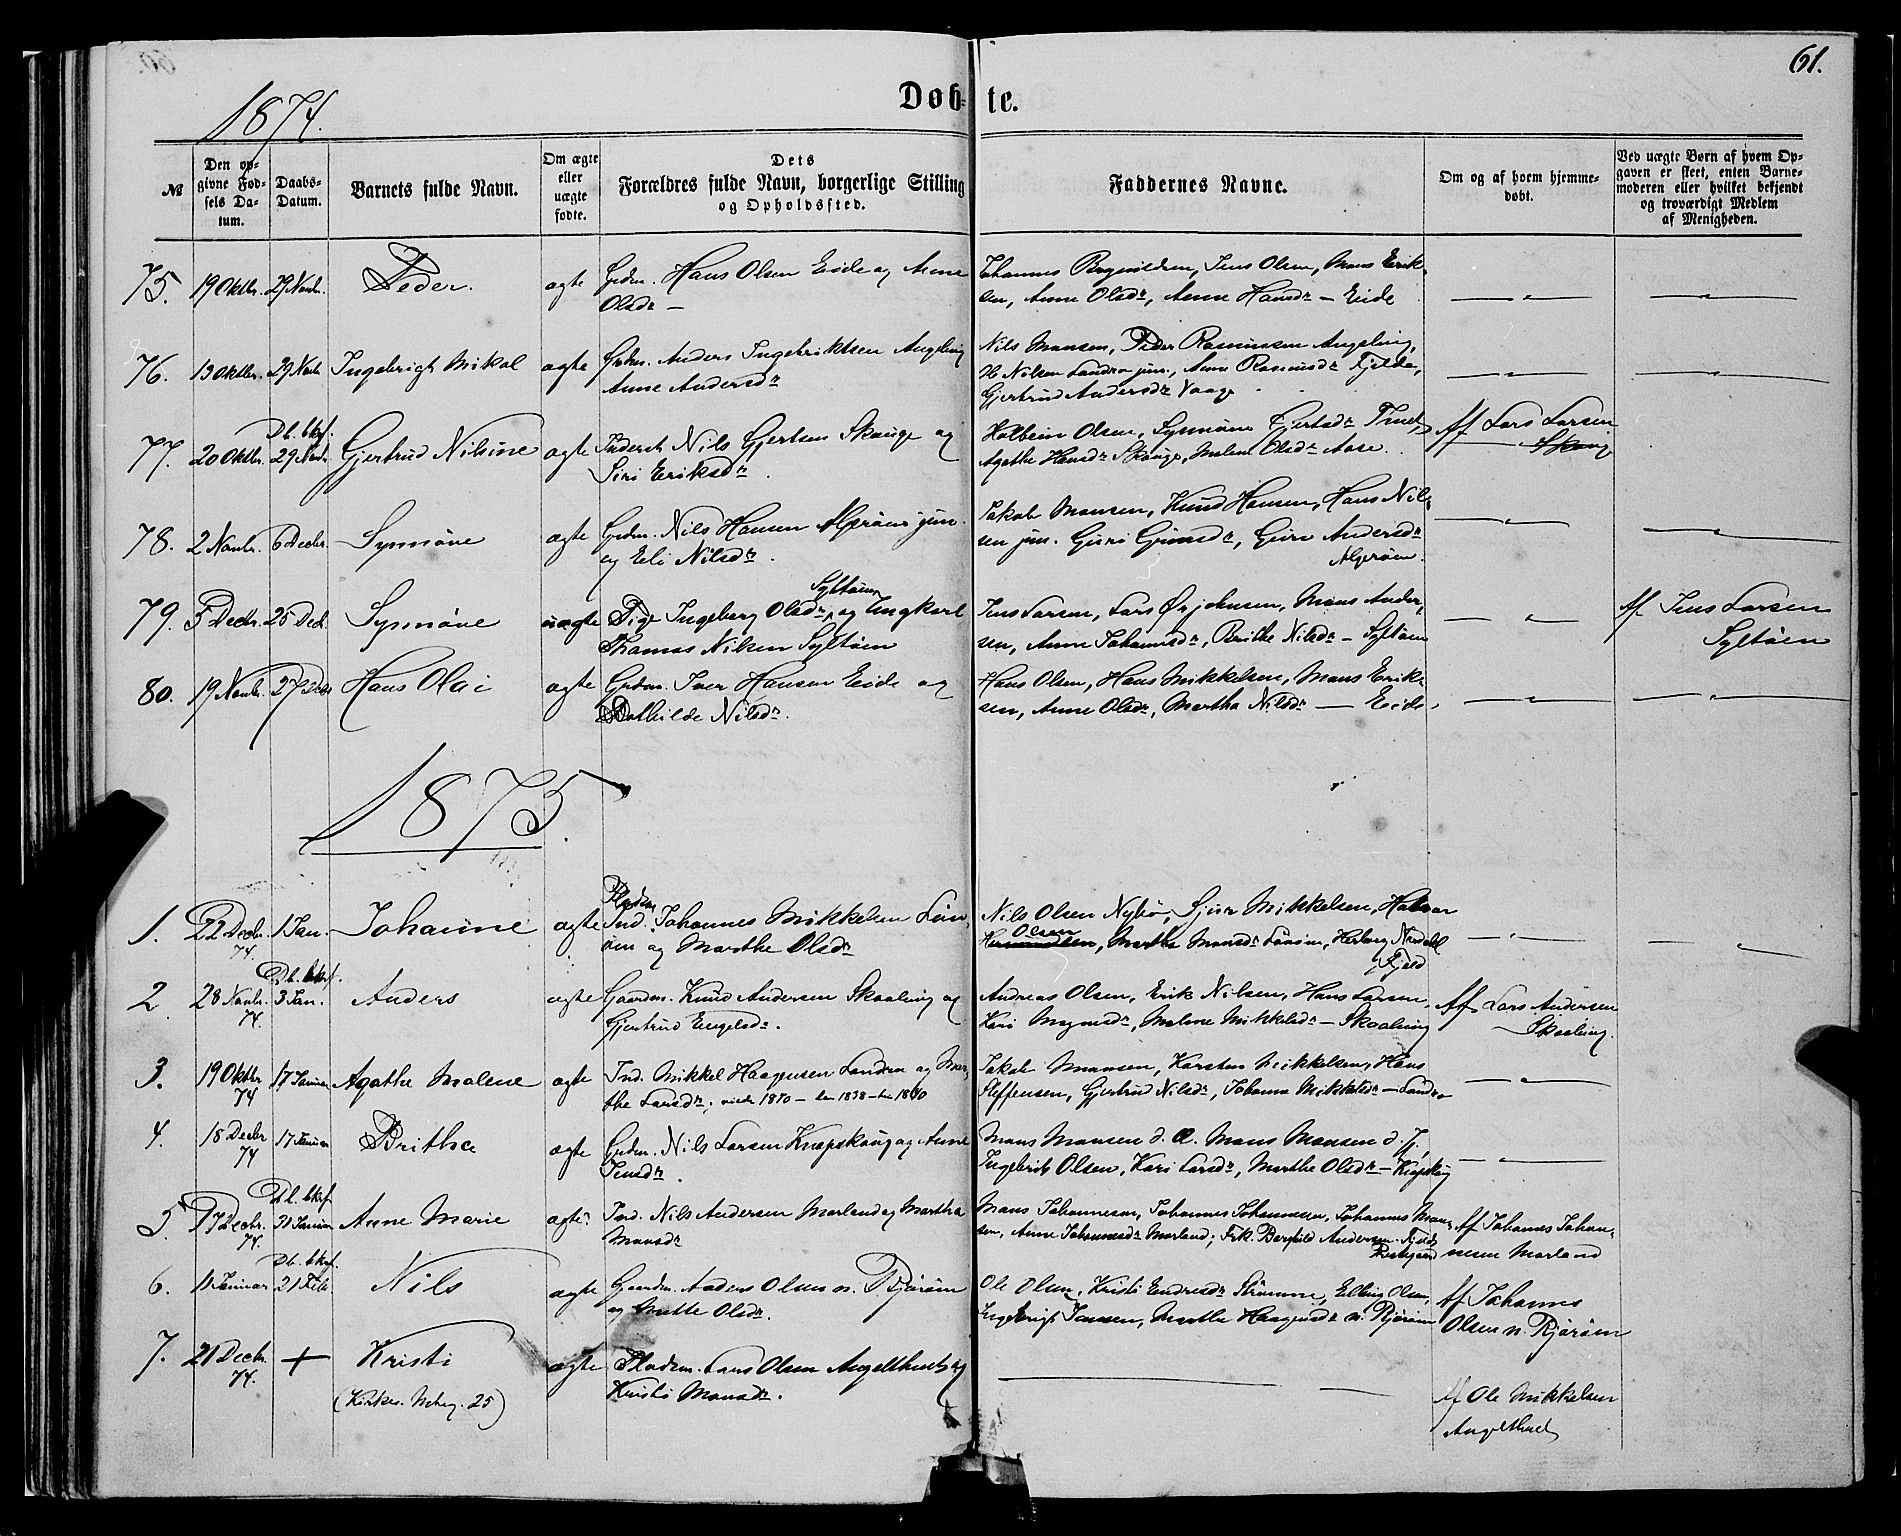 61.
1874.
Døb- te.
№
Den op-
givne Fød-
sels Da-
tum.
Daabs-
Datum.
Barnets fulde Navn.
Om ægte
eller
uægte
fødte.
Dets
Forældres fulde Navn, borgerlige Stilling
og Opholdssted.
Faddernes Navne.
Om og af hvem hjemme-
døbt.
Ved uægte Børn af hvem Op-
gaven er skeet, enten Barne-
moderen eller hvilket bekjendt
og troværdigt Medlem
af Menigheden.
75. 19 Oktbr. 29 Novbr. Peder. ægte Grdm. Hans Olsen Eide og Anne
Olsdr —
Johannes Olsen, Jens Olsen, Mons Erik-
sen, Anne Olsdr, Anne Hansdr — Eide
76. 13 Oktbr. 29 Novbr Ingebrigt Mikal ægte Grdm. Anders Ingebriktsen Angeltveit
Anne Andersdr
Nils Monsen, Peder Rasmussen
Ole Nilsen Landro jun., Anne Rasmusdr Fjelde,
Gjertrud Andersdr Vaage
77. 20 Oktbr. Db. bkrf. 29 Novbr. Gjertrud Nilsine ægte Inderst Nils Gjertsen Skauge og
Siri Eriksdr.
Olsen, Synnøve Gjertsdr
Agathe Hansdr Skauge, Malene Olsdr Aase.
Af Lars Larsen
Skaug
78. 2 Novbr. 6 Decbr. Synnøve ægte Grdm. Nils Hansen Algrøen jun.
og Eli Nilsdr.
Jakob Monsen, Knud Hansen, Hans Nil-
sen jun. Guri Andersdr
Algrøen.
79. 5 Decbr. 25 Dec. Synnøve uægte Pige Ingeborg Olsdr Syltøen, og Ungkarl
Thomas Nilsen Syltøen
Jens Larsen, Lars Ørjohnsen, Mons Ander-
sen, Anne Johannesdr, Brithe Nilsdr — Syltøen
Af Jens Larsen
Syltøen
80. 19 Novbr. 27 Decbr Hans Olai ægte Grdm. Iver Hansen Eide og
Bothilde Nilsdr.
Hans Olsen, Hans Mikkelsen, Mons Erik-
sen, Anne Olsdr, Martha Nilsdr — Eide
1875.
1. 22 Decbr. 74. 1 Jan. Johanne ægte Pladsm.
Ind. Johannes Mikkelsen Lon-
øen og Marthe Olsdr
Nils Olsen Nybø, Sjur Mikkelsen, Halvor
Olsen, Marthe Monsdr Lonøen,
Fjeld
2 28 Novbr. 74. Db. bkrf. 3 Jan. Anders ægte Gaardm. Knud Andersen Skaalvig og
Gjertrud Engelsdr.
Andreas Olsen, Erik Nilsen, Hans Larsen,
Kari Magnusdr, Malene Mikkelsdr — Skaalvig
Af Lars Andersen
Skaalvig.
3. 19 Oktbr 74 17 Januar Agathe Malene ægte Ind. Mikkel Haagensen Landro og Mar-
the Larsdr; viede 1870 —
Jakob Monsen, Karsten Mikkelsen, Hans
Steffensen, Gjertrud Nilsdr, Johanna Mikkelsdr — Landro
4. 18 Decbr 74 17 Januar Brithe ægte Grdm. Nils Larsen Knapskaug og Anne
Jensdr.
Mons Monsen d. Æ. Mons Monsen d. Y.
Ingebrikt Olsen, Kari Larsdr, Marthe Olsdr — Knapskog
5. 17 Decbr. 74. Db. bkrf. 31 Januar Anne Marie ægte Ind. Nils Andersen Morland og Martha
Monsdr
Mons Johannesen, Johannes Johannessen, Johannes Mon-
sen, Anne Johannesdr Morland; Frk. Berghild Andersen Fjeld
Prestegaard
Af Johannes Johan-
nesen Morland
6. 11 Januar Db. bkrf. 21 Feb. Nils ægte Gaardm. Anders Olsen n. Bjørøen
og Mette Olsdr.
Ole Olsen, Kristi Endresdr Strømme, Elling Olsen,
Ingebrigt Jansen, Marthe Haagensdr n. Bjørøen
Af Johannes
Olsen n. Bjørøen
7. 21 Decbr. 74. + Kristi ægte Pladsm. Lars Olsen Angeltveit og
Kristi Monsdr.
(Kirkes. Mchrg. 25)
Af Ole Mikkelsen
Angeltveit